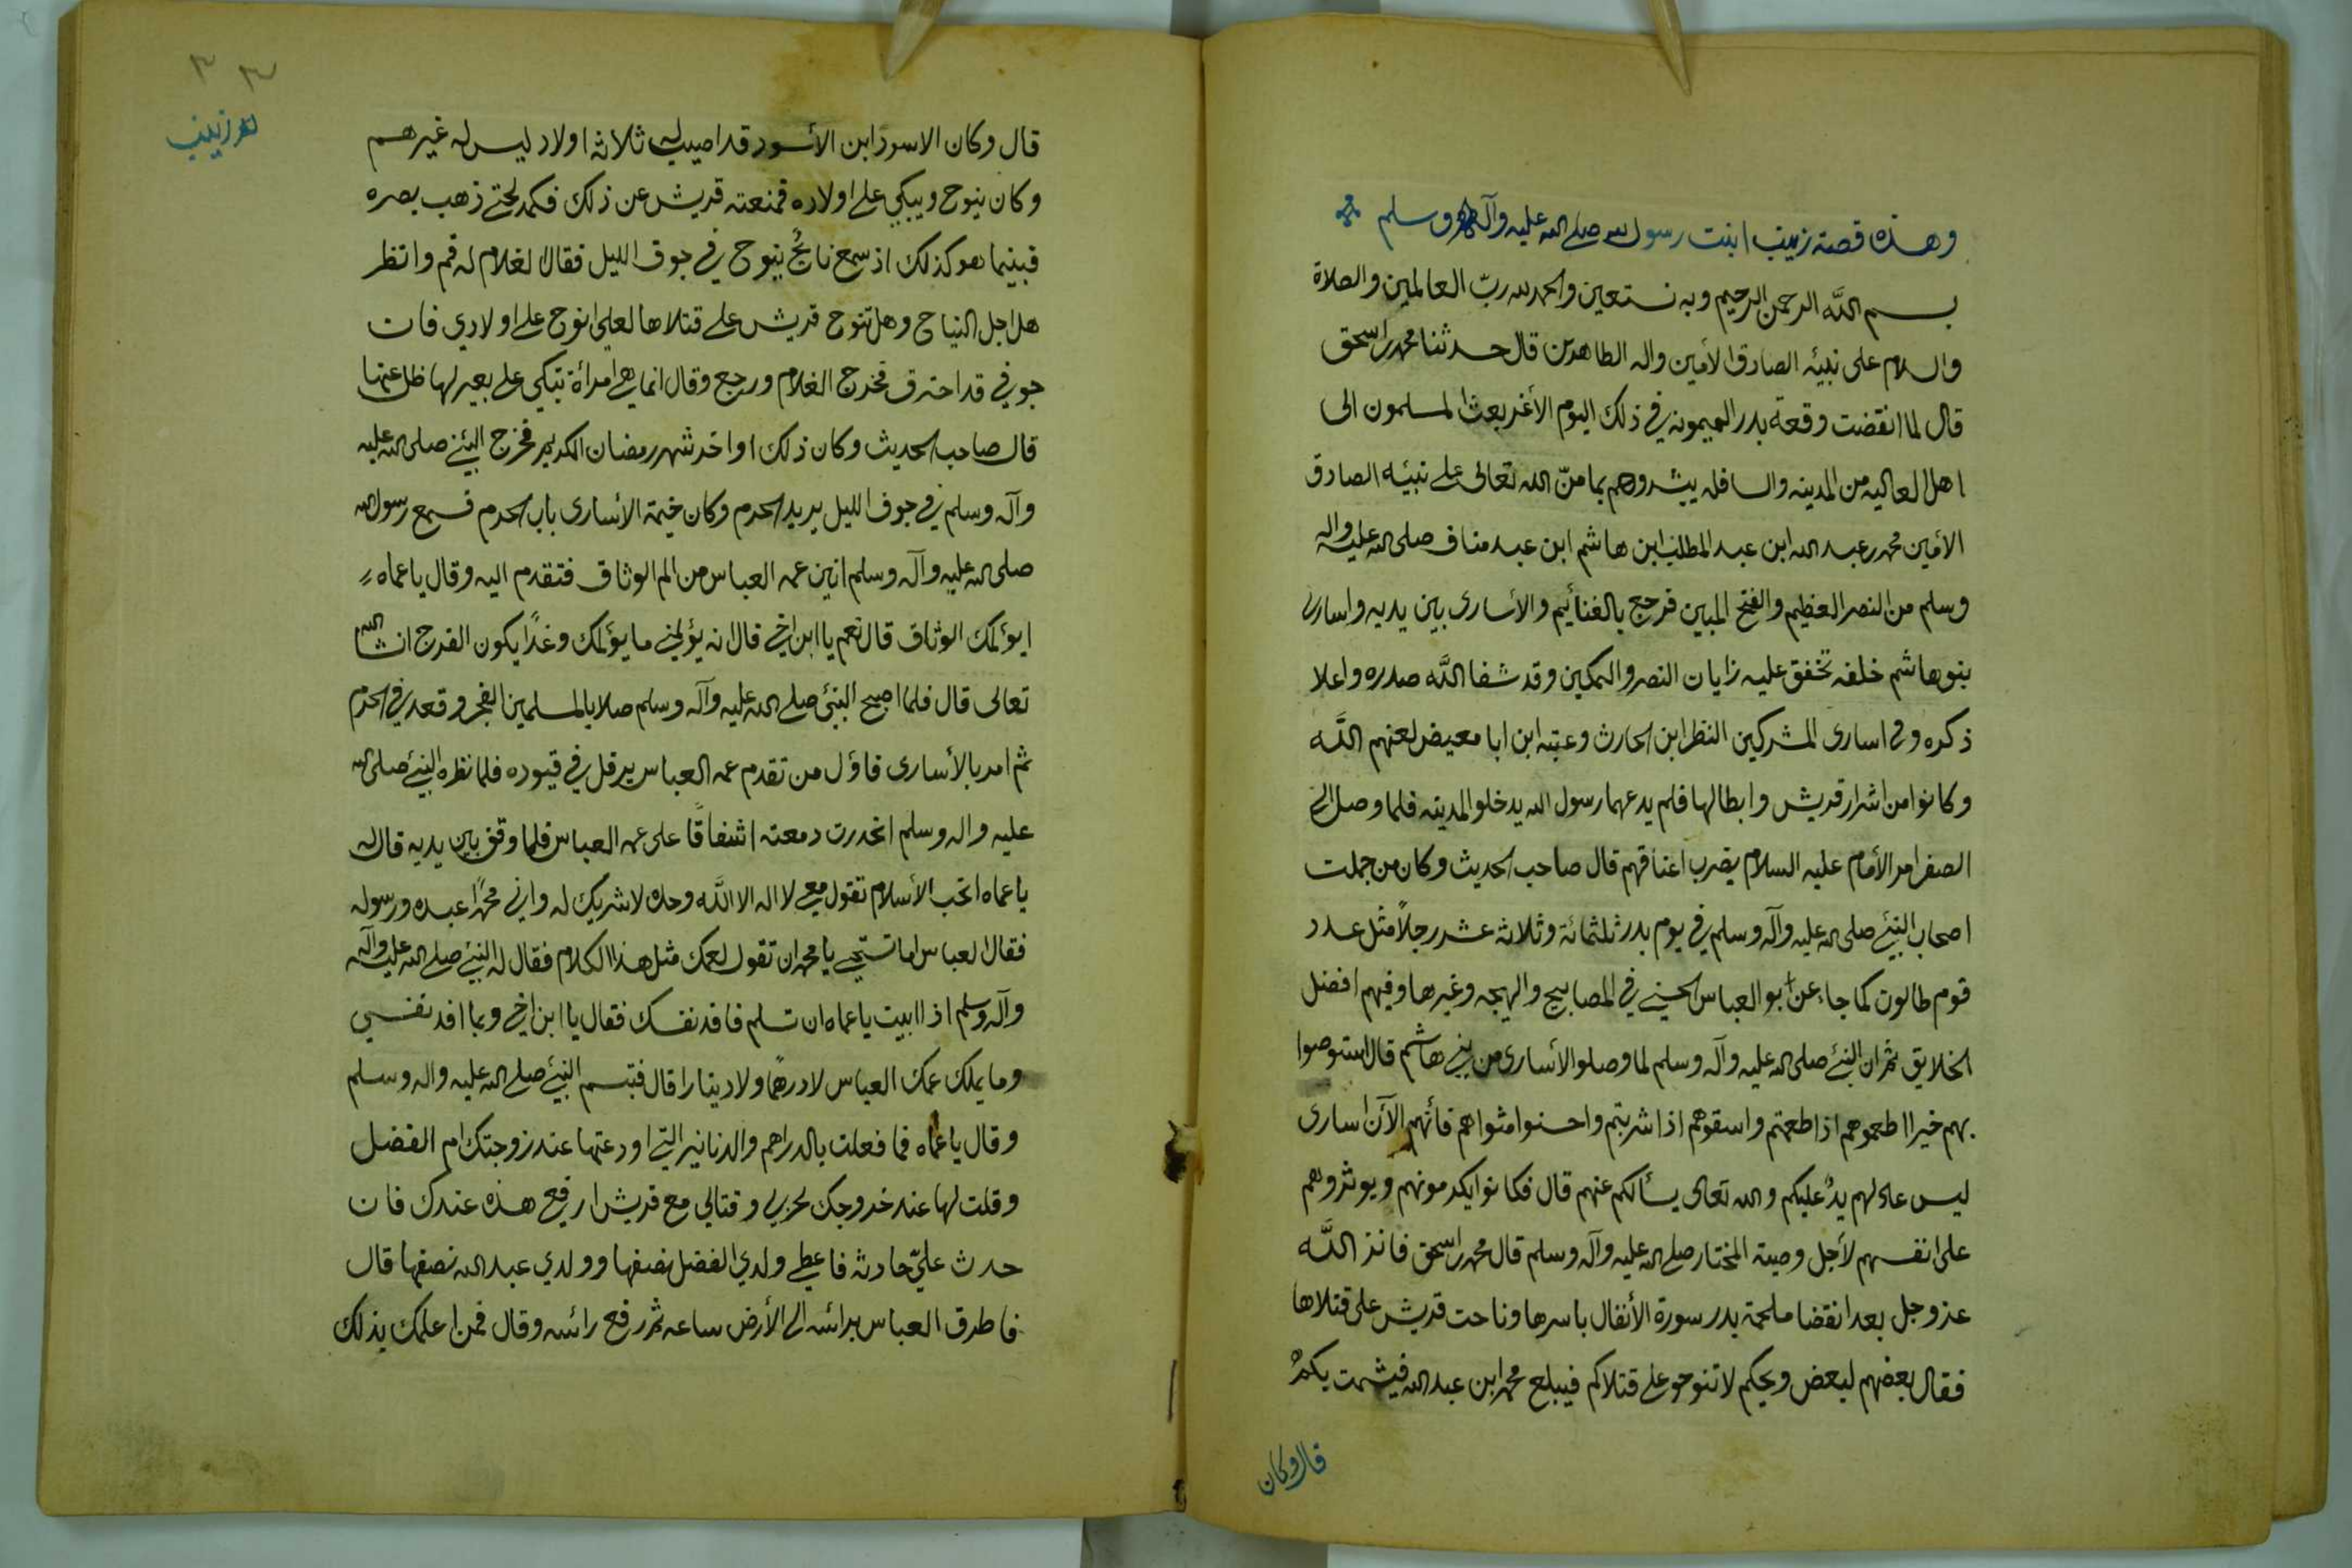 وهذه قصة زينب ابنت رسول الله صلى الله عليه وآله وسلم
بسم الله الرحمن الرحيم وبه نستعين والحمد لله ربّ العالمين والصلاة
والسلام على نبيئه الصادق الأمين واله الطاهرين قال حدثنا محمد ابن اسحق
قال لما انقضت وقعة بدر الميمونه في ذلك اليوم الأغر بعث المسلمون الى
اهل العاليه من المدينه والسافله يبشروهم بما منّ الله تعالى على نبيئه الصادق
الأمين محمد ابن عبد الله ابن عبد المطلب ابن هاشم ابن عبد مناف صلى الله عليه واله
وسلم من النصر العظيم والفتح المبين فرجع بالغنائيم والأسارى بين يديه واسارى
بنو هاشم خلفه تخفق عليه رايات النصر والتمكين وقد شفا الله صدره واعلا
ذكره وفي اسارى المشركين النظر ابن الحارث وعتبه ابن ابا معيض لعنهم الله
وكانوا من اشرار قريش وابطالها فلم يدعهما رسول الله يدخلو المدينه فلما وصل الى
الصفرا امر الأمام عليه السلام يضرب اعناقهم قال صاحب الحديث وكان من جملت
اصحاب النبيئ صلى الله عليه وآله وسلم في يوم بدر ثلثمائة وثلاثه عشر رجلاً مثل عدد
قوم طالوت كما جاء عن ابو العباس الحسيني في المصابيح والبهجه وغيرها وفيهم افضل
الخلايق ثم ان النبيئ صلى الله عليه وآله وسلم لما وصلو الأسارى من بني هاشم قال استوصوا
بهم خيرا اطعموهم اذا طعمتم واسقوهم اذا شربتم واحسنوا مثواهم فأنهم الآن اسارى
ليس عاد لهم يدٌ عليكم والله تعالى يسألكم عنهم قال فكانوا يكرمونهم ويوثروهم
على انفسهم لأجل وصية المختار صلى الله عليه وآله وسلم قال محمد ابن اسحق فانزل الله
عز وجل بعد انقضا ملحمة بدر سورة الأنفال باسرها وناحت قريش على قتلاها
فقال بعضهم لبعض ويحكم لا تنوحو على قتلاكم فيبلغ محمد ابن عبد الله فيشمت بكم
قال وكان
٣ ٣
زينب
قال وكان الاسود ابن الأسود قد اصيب له ثلاثه اولاد ليس له غيرهم
وكان ينوح ويبكي على اولاده فمنعته قريش عن ذلك فكمد حتى ذهب بصره
فبينما هو كذلك اذ سمع نائحٌ ينوح في جوف الليل فقال الغلام له قم وانظر
هل اجل النياح وهل تنوح قريش على قتلاها لعلي انوح على اولادي فان
جوفي قد احترق فخرج الغلام ورجع وقال انما هي امرأة تبكي على بعير لها ظل عنها
قال صاحب الحديث وكان ذلك اواخر شهر رمضان الكريم فخرج النبيئ صلى الله عليه
وآله وسلم في جوف الليل يريد الحرم وكان خيمة الأسارى باب الحرم فسمع رسول الله
صلى الله عليه وآله وسلم انين عمه العباس من الم الوثاق فتقدم اليه وقال يا عماه
ايؤلمك الوثاق قال نعم يا ابن اخي قال انه يؤلمني ما يؤلمك وغداً يكون الفرج انشا الله
تعالى قال فلما اصبح النبيئ صلى الله عليه وآله وسلم صلا بالمسلمين الفجر وقعد في الحرم
ثم امر بالأسارى فاؤل من تقدم عمه العباس يرفل في قيوده فلما نظره النبيئ صلى الله
عليه واله وسلم انحدرت دمعته اشفاقاً على عمه العباس فلما وقف بين يديه قال له
يا عماه اتحب الأسلام تقول معي لا اله الا الله وحده لا شريك له واني محمداً عبده ورسوله
فقال العباس اما تستحي يا محمد ان تقول لعمك مثل هذا الكلام فقال له النبيئ صلى الله عليه وآله
وآله وسلم اذا ابيت يا عماه ان تسلم فافد نفسك فقال يا ابن اخي وبما افد نفسي
وما يملك عمك العباس لا درهماً ولا دينارا قال فتبسم النبيئ صلى الله عليه واله وسلم
وقال يا عماه فما فعلت بالدراهم والدنانير التي اودعتها عند زوجتك ام الفضل
وقلت لها عند خروجك لحربي وقتالي مع قريش ارفعي هذه عندك فان
حدث عليّ حادثه فاعطي ولدي الفضل نصفها وولدي عبد الله نصفها قال
فاطرق العباس برائسه الى الأرض ساعه ثم رفع رائسه وقال فمن اعلمك بذلك